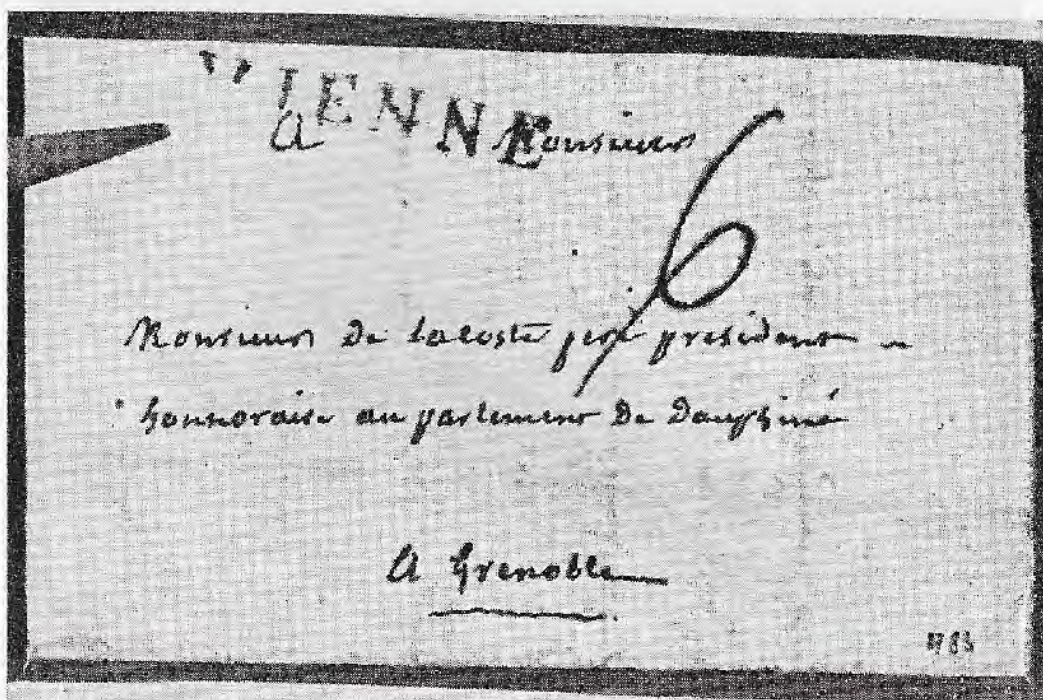 VIENNE
a Monsieur
6
Monsieur de lacoste pere president
honnoraire au parlement de Dauphiné
A Grenoble